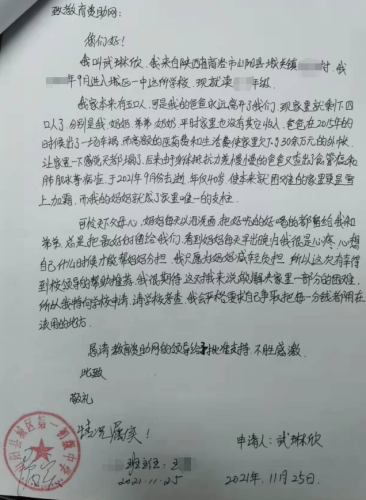 致教育资助网：
您们好！
我叫武琳欣，我来自陕西省商洛市山阳县城关镇 村，我
年9月进入城区一中这所学校，现就读 年级。
我家本来有五口人，可是我的爸爸永远离开了我们，现家里就剩下四
口人了，分别是我、奶奶、弟弟、妈妈，平时家里也没有其它收入，爸爸在2015年的
时候出了一场车祸，而高额的医药费和生活费使家里欠下了30余万元的外债，
让家里一下感觉天都塌了，后来由于身体抵抗力差慢慢的爸爸又查出了食管癌和
肺部水等病症，于2021年9月份去逝，年仅40岁，使本来就困难的家里更是雪
上加霜，而我的妈妈就成了家里唯一的支柱。
可怜天下父母心，妈妈每天以泪洗面，把好吃的好喝的都留给我和
弟弟，总是把最好的留给我们，看到妈妈每天早出晚归我很是心疼，心想
自己什么时候才能帮妈妈分担，我只愿妈妈减轻负担，所以这次有幸得
到校领导的帮助推荐，我很期待，这对我来说能解决家里一部分的困难，
所以我特向学校申请，请学校考查，我会严格要求自己争取把每一分钱都用在
该用的地方。
恳请教育资助网的领导给予批准支持 不胜感激
此致
敬礼
情况属实！
申请人：武琳欣
班主任：王
2021.11.25
2021年11月25日.
阳县城区第一初级中学